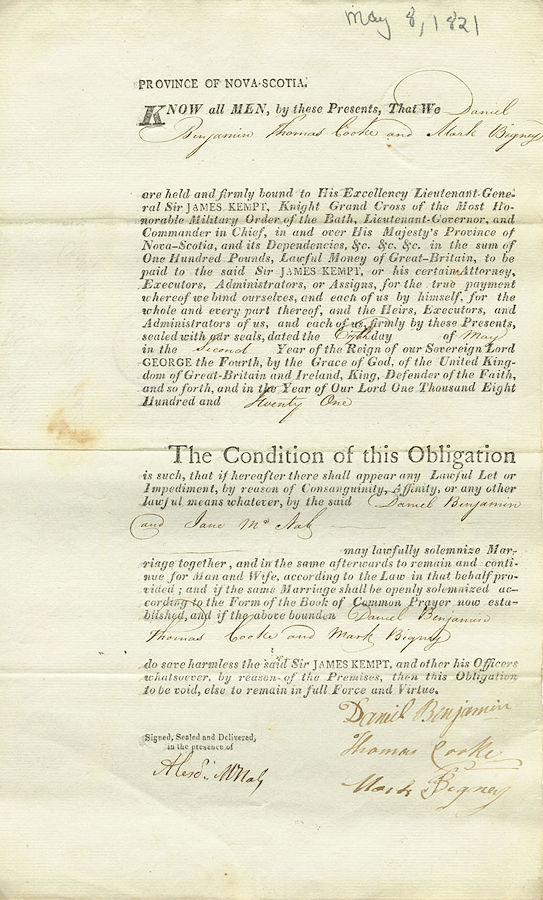 May 8, 1821
PROVINCE OF NOVA-SCOTIA.
KNOW all MEN, by these Presents, That We Daniel
Benjamin Thomas Cooke and Mark Bigney
are held and firmly bound to His Excellency Lieutenant-Gene-
ral Sir JAMES KEMPT, Knight Grand Cross of the Most Ho-
norable Military Order of the Bath, Lieutenant-Governor, and
Commander in Chief, in and over His Majesty's Province of
Nova-Scotia, and its Dependencies, &c. &c. &c. in the sum of
One Hundred Pounds, Lawful Money of Great-Britain, to be
paid to the said Sir JAMES KEMPT, or his certain Attorney,
Executors, Administrators, or Assigns, for the true payment
whereof we bind ourselves, and each of us by himself, for the
whole and every part thereof, and the Heirs, Executors, and
Administrators of us, and each of us, firmly by these Presents,
sealed with our seals, dated the day of May
in the Second Year of the Reign of our Sovereign Lord
GEORGE the Fourth, by the Grace of God, of the United King-
dom of Great-Britain and Ireland, King, Defender of the Faith,
and so forth, and in the Year of Our Lord One Thousand Eight
Hundred and Twenty One
The Condition of this Obligation
is such, that if hereafter there shall appear any Lawful Let or
Impediment, by reason of Consanguinity, Affinity, or any other
lawful means whatever, by the said Daniel Benjamin
and Jane McNab
may lawfully solemnize Mar-
riage together, and in the same afterwards to remain and conti-
nue for Man and Wife, according to the Law in that behalf pro-
vided; and if the same Marriage shall be openly solemnized ac-
cording to the Form of the Book of Common Prayer now esta-
blished, and if the above bounden Daniel Benjamin
Thomas Cooke and Mark Bigney
do save harmless the said Sir JAMES KEMPT, and other his Officers
whatsoever, by reason of the Premises, then this Obligation
to be void, else to remain in full Force and Virtue.
Daniel Benjamin
Signed, Sealed and Delivered,
in the presence of
Thomas Cooke
Alexdr McNab
Mark Bigney